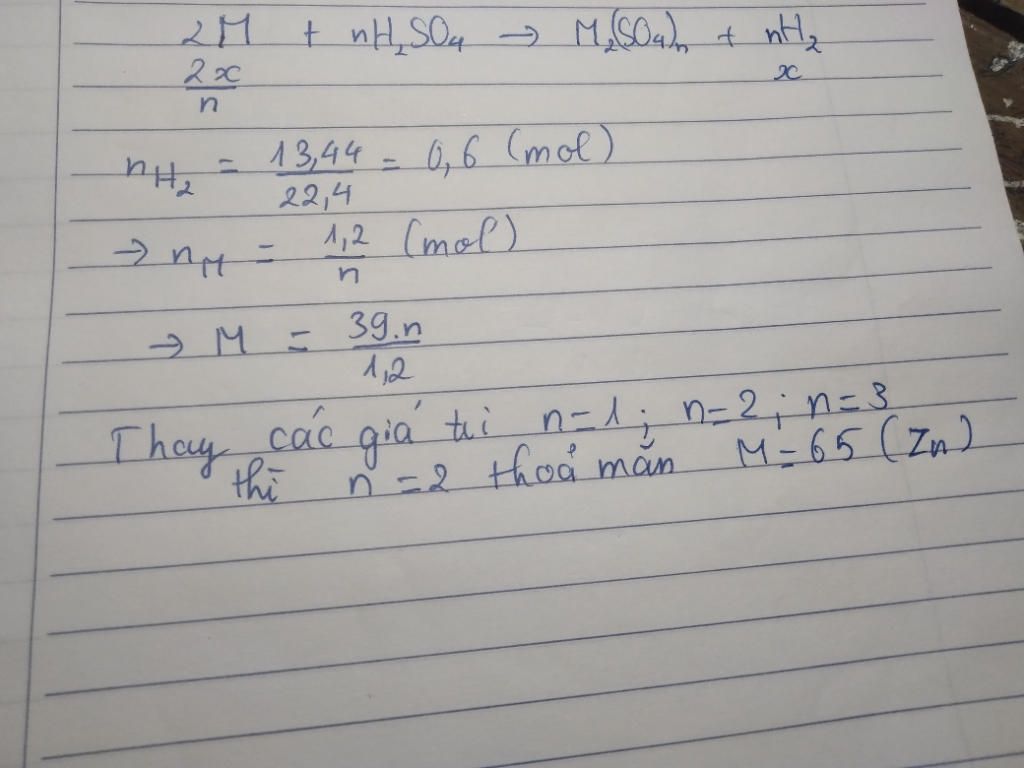 2M + nH₂SO₄ → M₂(SO₄)n + nH₂
2x/n x
nH₂ = 13,44/22,4 = 0,6 (mol)
→ nM = 1,2/n (mol)
→ M = 39.n/1,2
Thay các giá trị n=1; n=2; n=3
thì n=2 thoả mãn M=65 (Zn)